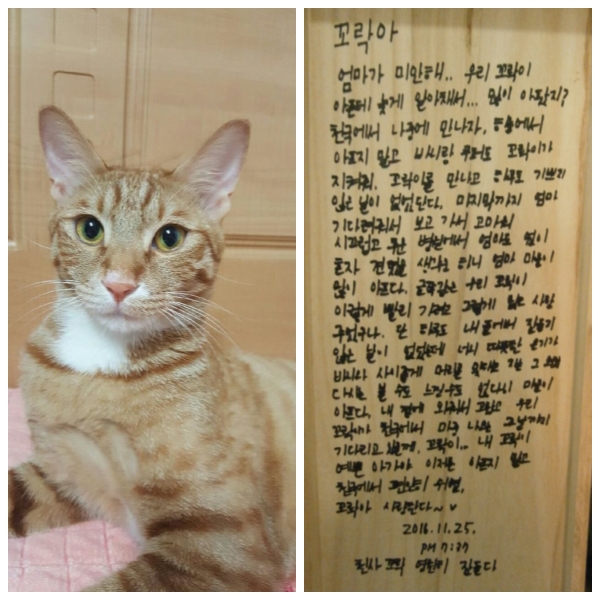 꼬락아
엄마가 미안해.. 우리 꼬락이
아픈데 늦게 알아채서... 많이 아팠지?
천국에서 나중에 만나자.
아프지 말고 꼬락이가
지켜줘. 꼬락이를 만나고 하루도 기쁘지
않은 날이 없었단다. 마지막까지 엄마
기다려줘서 보고 가서 고마워
시끄럽고 병원에서 엄마도 없이
혼자 생각을 하니 엄마 마음이
많이 아프다. 우리 꼬락이
이렇게 빨리 가려고 그렇게 사랑
주었구나. 단 하루도 내 곁에서 잠들지
않은 날이 없었는데 너의 따뜻한 온기가
다시는 볼 수도 느낄수도 없다니 마음이
아프다. 내 곁에 와줘서 고맙고 우리
꼬락이가 천국에서 마중 나올 그날까지
기다리고 있을게. 꼬락이.. 내 꼬락이
예쁜 아가야 이제는 아프지 말고
천국에서 편안히 쉬렴.
꼬락아 사랑한다~♥
2016.11.25.
PM 7:37
천사 꼬락 영원히 잠들다